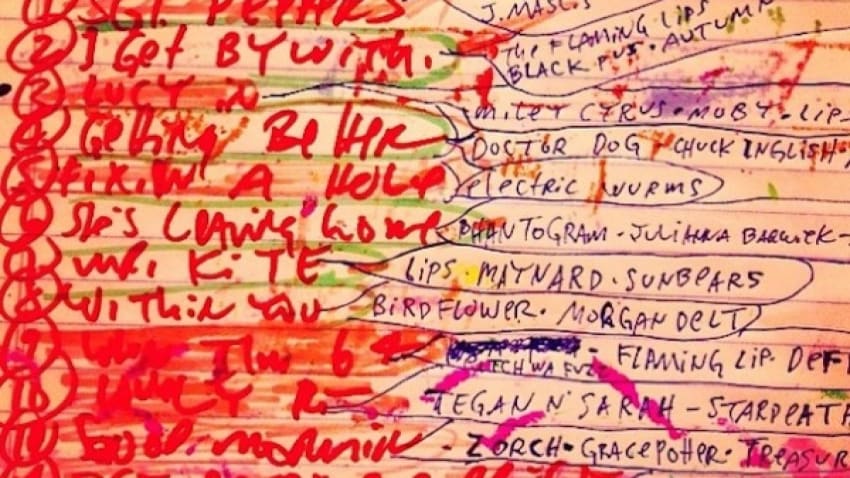 ① SGT. PEPPERS J. MASCIS
② I GET BY WITH. THE FLAMING LIPS
BLACK PUS · AUTUMN
③ LUCY IN MILEY CYRUS · MOBY · LIPS
④ GETTING BETTER DOCTOR DOG · CHUCK INGLISH
⑤ FIXIN A HOLE electric wurms
⑥ She's Leaving home PHANTOGRAM · JULIANNA BARWICK -
⑦ MR. KITE LIPS · MAYNARD · SUNBEARS
⑧ WITHIN YOU BIRDFLOWER · MORGAN DELT
⑨ WHEN I'M 64 - FLAMING LIP. DEF
⑩ LOVELY R. TEGAN N' SARAH - STARDEATH
⑪ GOOD MORNIN - ZORCH · GRACE POTTER · TREASUR